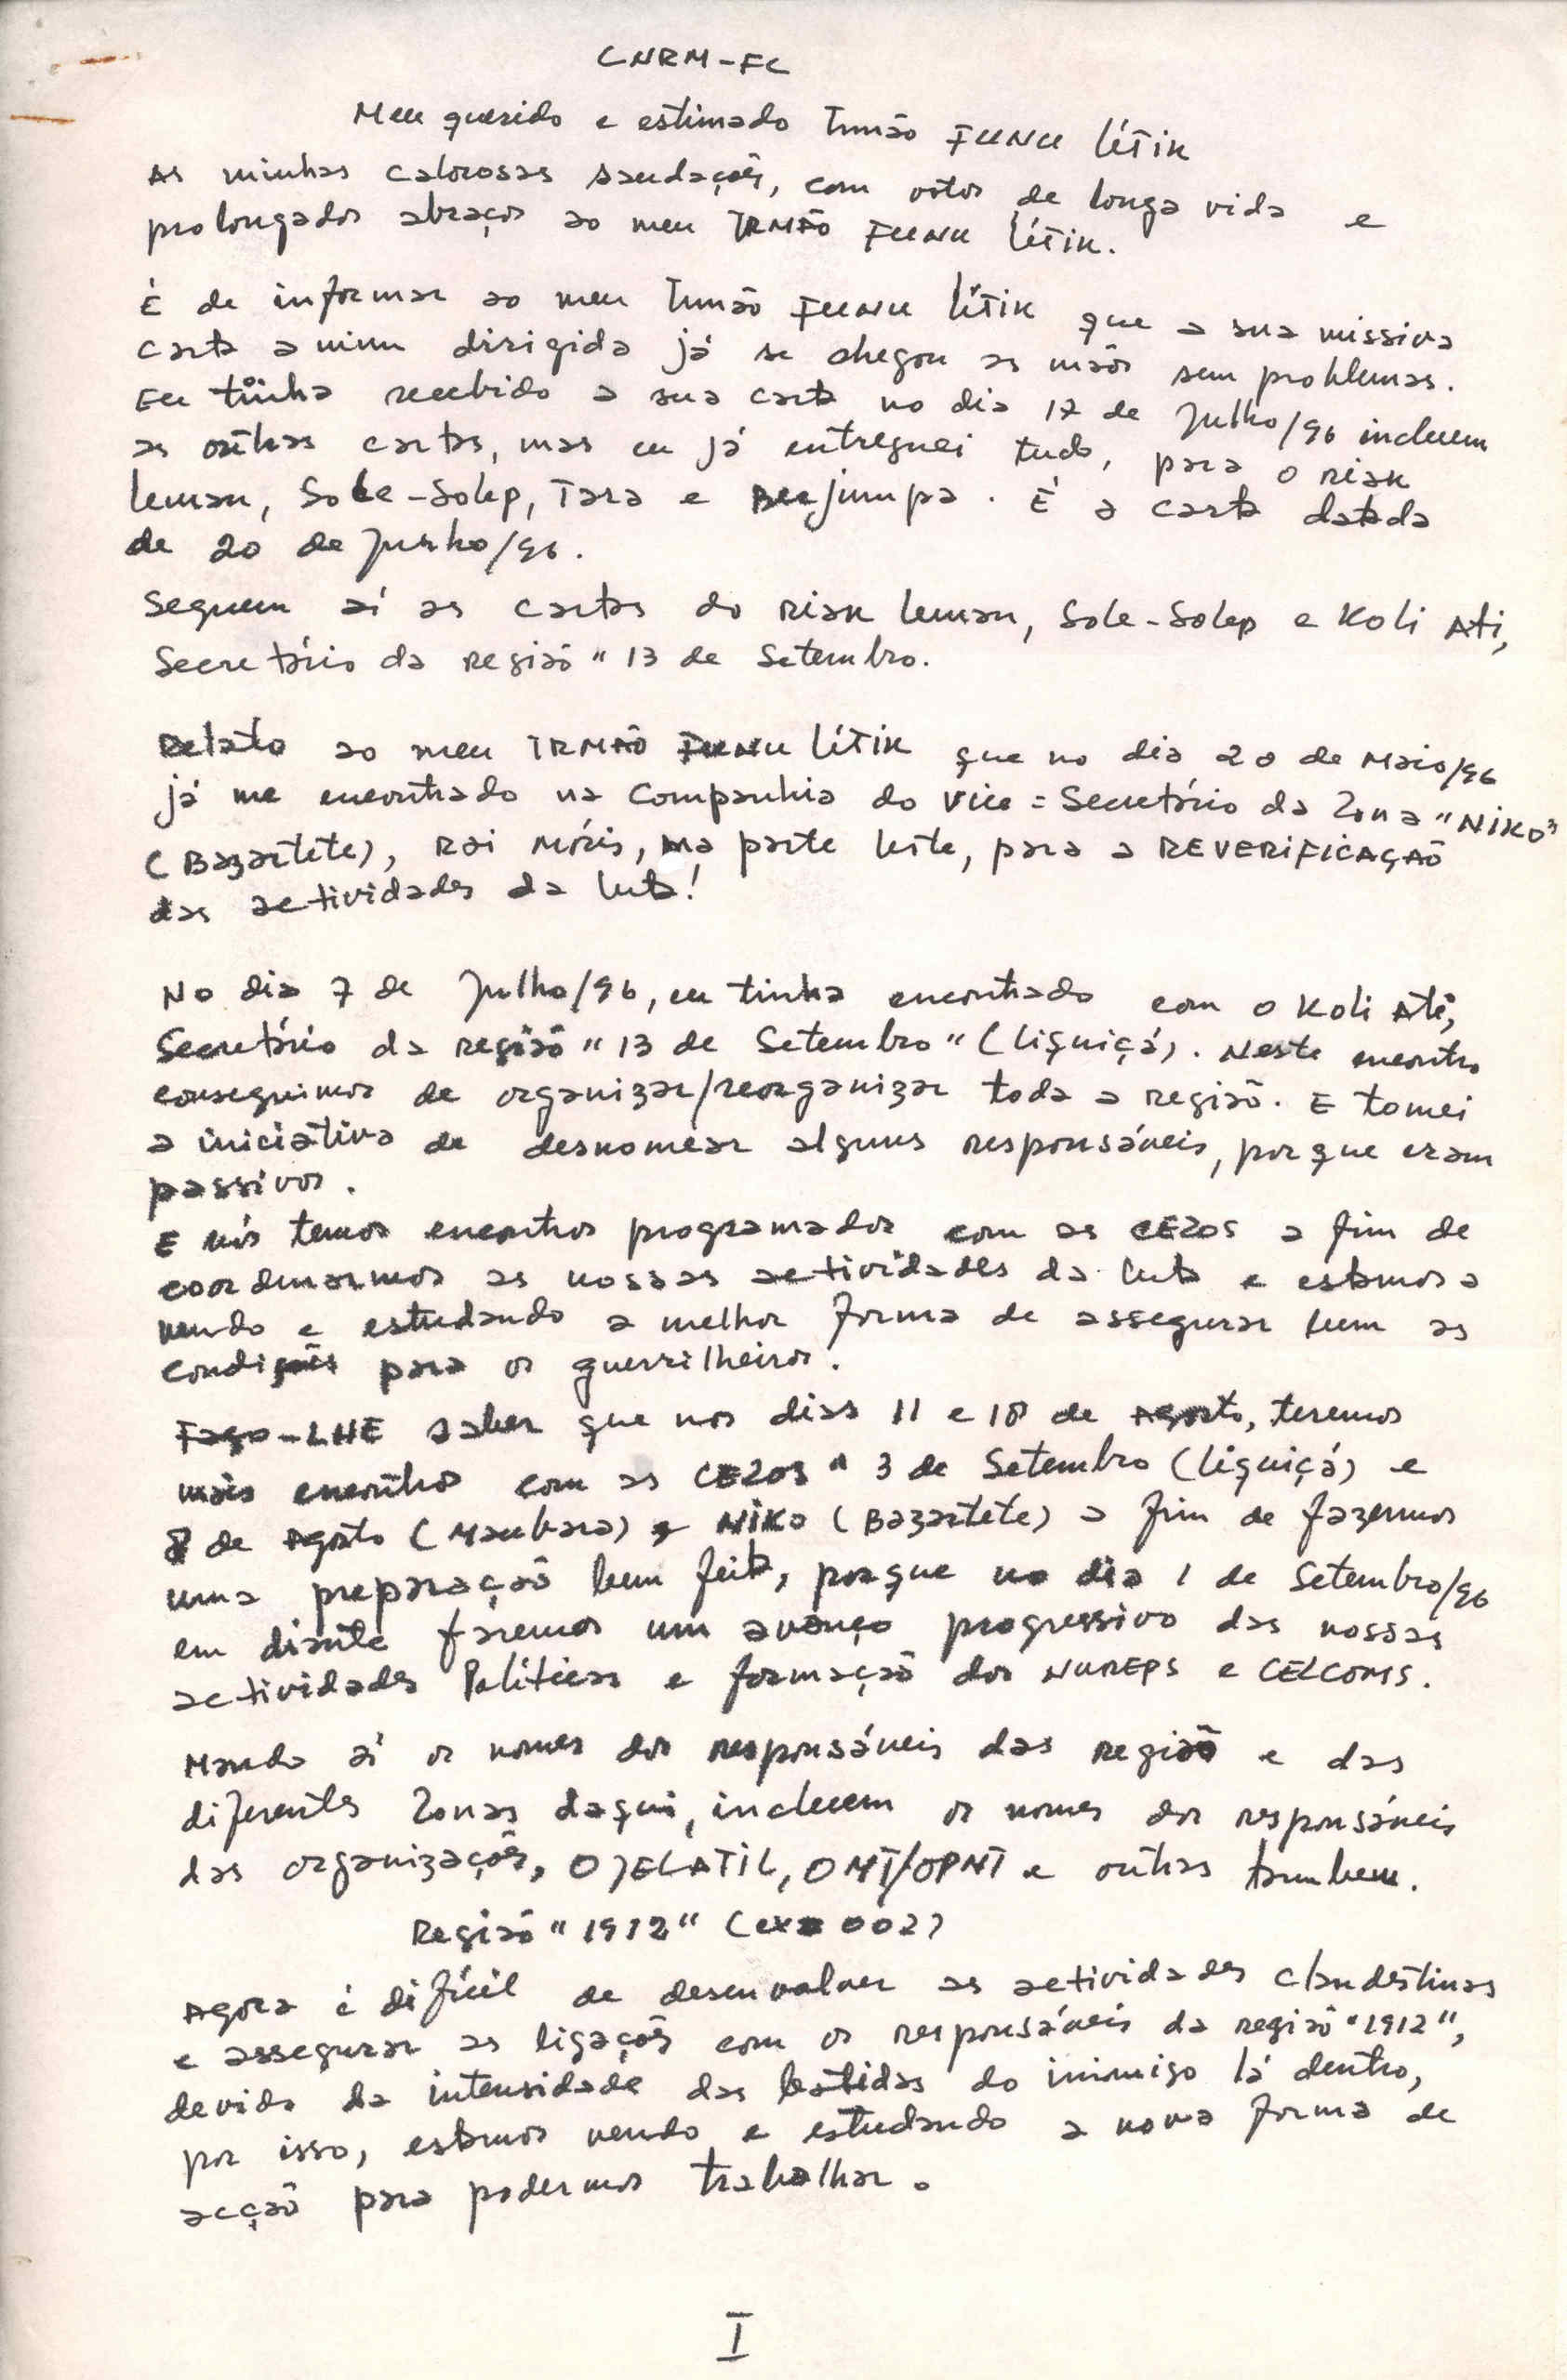 CNRM-FC
Meu querido e estimado Irmão FUNU LÍTIK
As minhas calorosas saudações, com votos de longa vida e
prolongados abraços ao meu IRMÃO FUNU LÍTIK.
É de informar ao meu Irmão FUNU LÍTIK que a sua missiva
carta a mim dirigida já se chegou as mãos sem problemas.
Eu tinha recebido a sua carta no dia 17 de Julho/96 incluem
as outras cartas, mas eu já entreguei tudo, para o Riak
Leman, Sole-Solep, Tara e Beejumpa. É a carta datada
de 20 de Junho/96.
Seguem aí as cartas do Riak Leman, Sole-Solep e Koli Ati,
Secretário da Região "13 de Setembro.
Relato ao meu IRMÃO FUNU LÍTIK que no dia 20 de Maio/96
já me encontrado na Companhia do Vice=Secretário da Zona "NIKO"
(Bazartete), Rai Móris, na parte leste, para a REVERIFICAÇÃO
das actividades da luta!
No dia 7 de Julho/96, eu tinha encontrado com o Koli Ati,
Secretário da Região "13 de Setembro" (Liquiçá). Neste encontro
conseguimos de organizar/reorganizar toda a região. E tomei
a iniciativa de desnomear alguns responsáveis, porque eram
passivos.
E nós temos encontros programados com as CEZOS a fim de
coordenarmos as nossas actividades da luta e estamos a
vendo e estudando a melhor forma de assegurar bem as
condições para os guerrilheiros.
Faço-LHE saber que nos dias 11 e 18 de Agosto, teremos
mais encontros com as CEZOS " 3 de Setembro (Liquiçá) e
8 de Agosto (Maubara) e NIKO (Bazartete) a fim de fazermos
uma preparação bem feita, porque no dia 1 de Setembro/96
em diante faremos um avanço progressivo das nossas
actividades Políticas e formação dos NUREPS e CELCOMS.
Mando aí os nomes dos responsáveis das região e das
diferentes Zonas daqui, incluem os nomes dos responsáveis
das organizações, OJELATIL, OMT/OPMT e outras tambem.
Região "1912" (ex 002)
Agora é difícil de desenvolver as actividades clandestinas
e assegurar as ligações com os responsáveis da região "1912",
devido da intensidade das batidas do inimigo lá dentro,
por isso, estamos vendo e estudando a nova forma de
acção para podermos trabalhar.
I